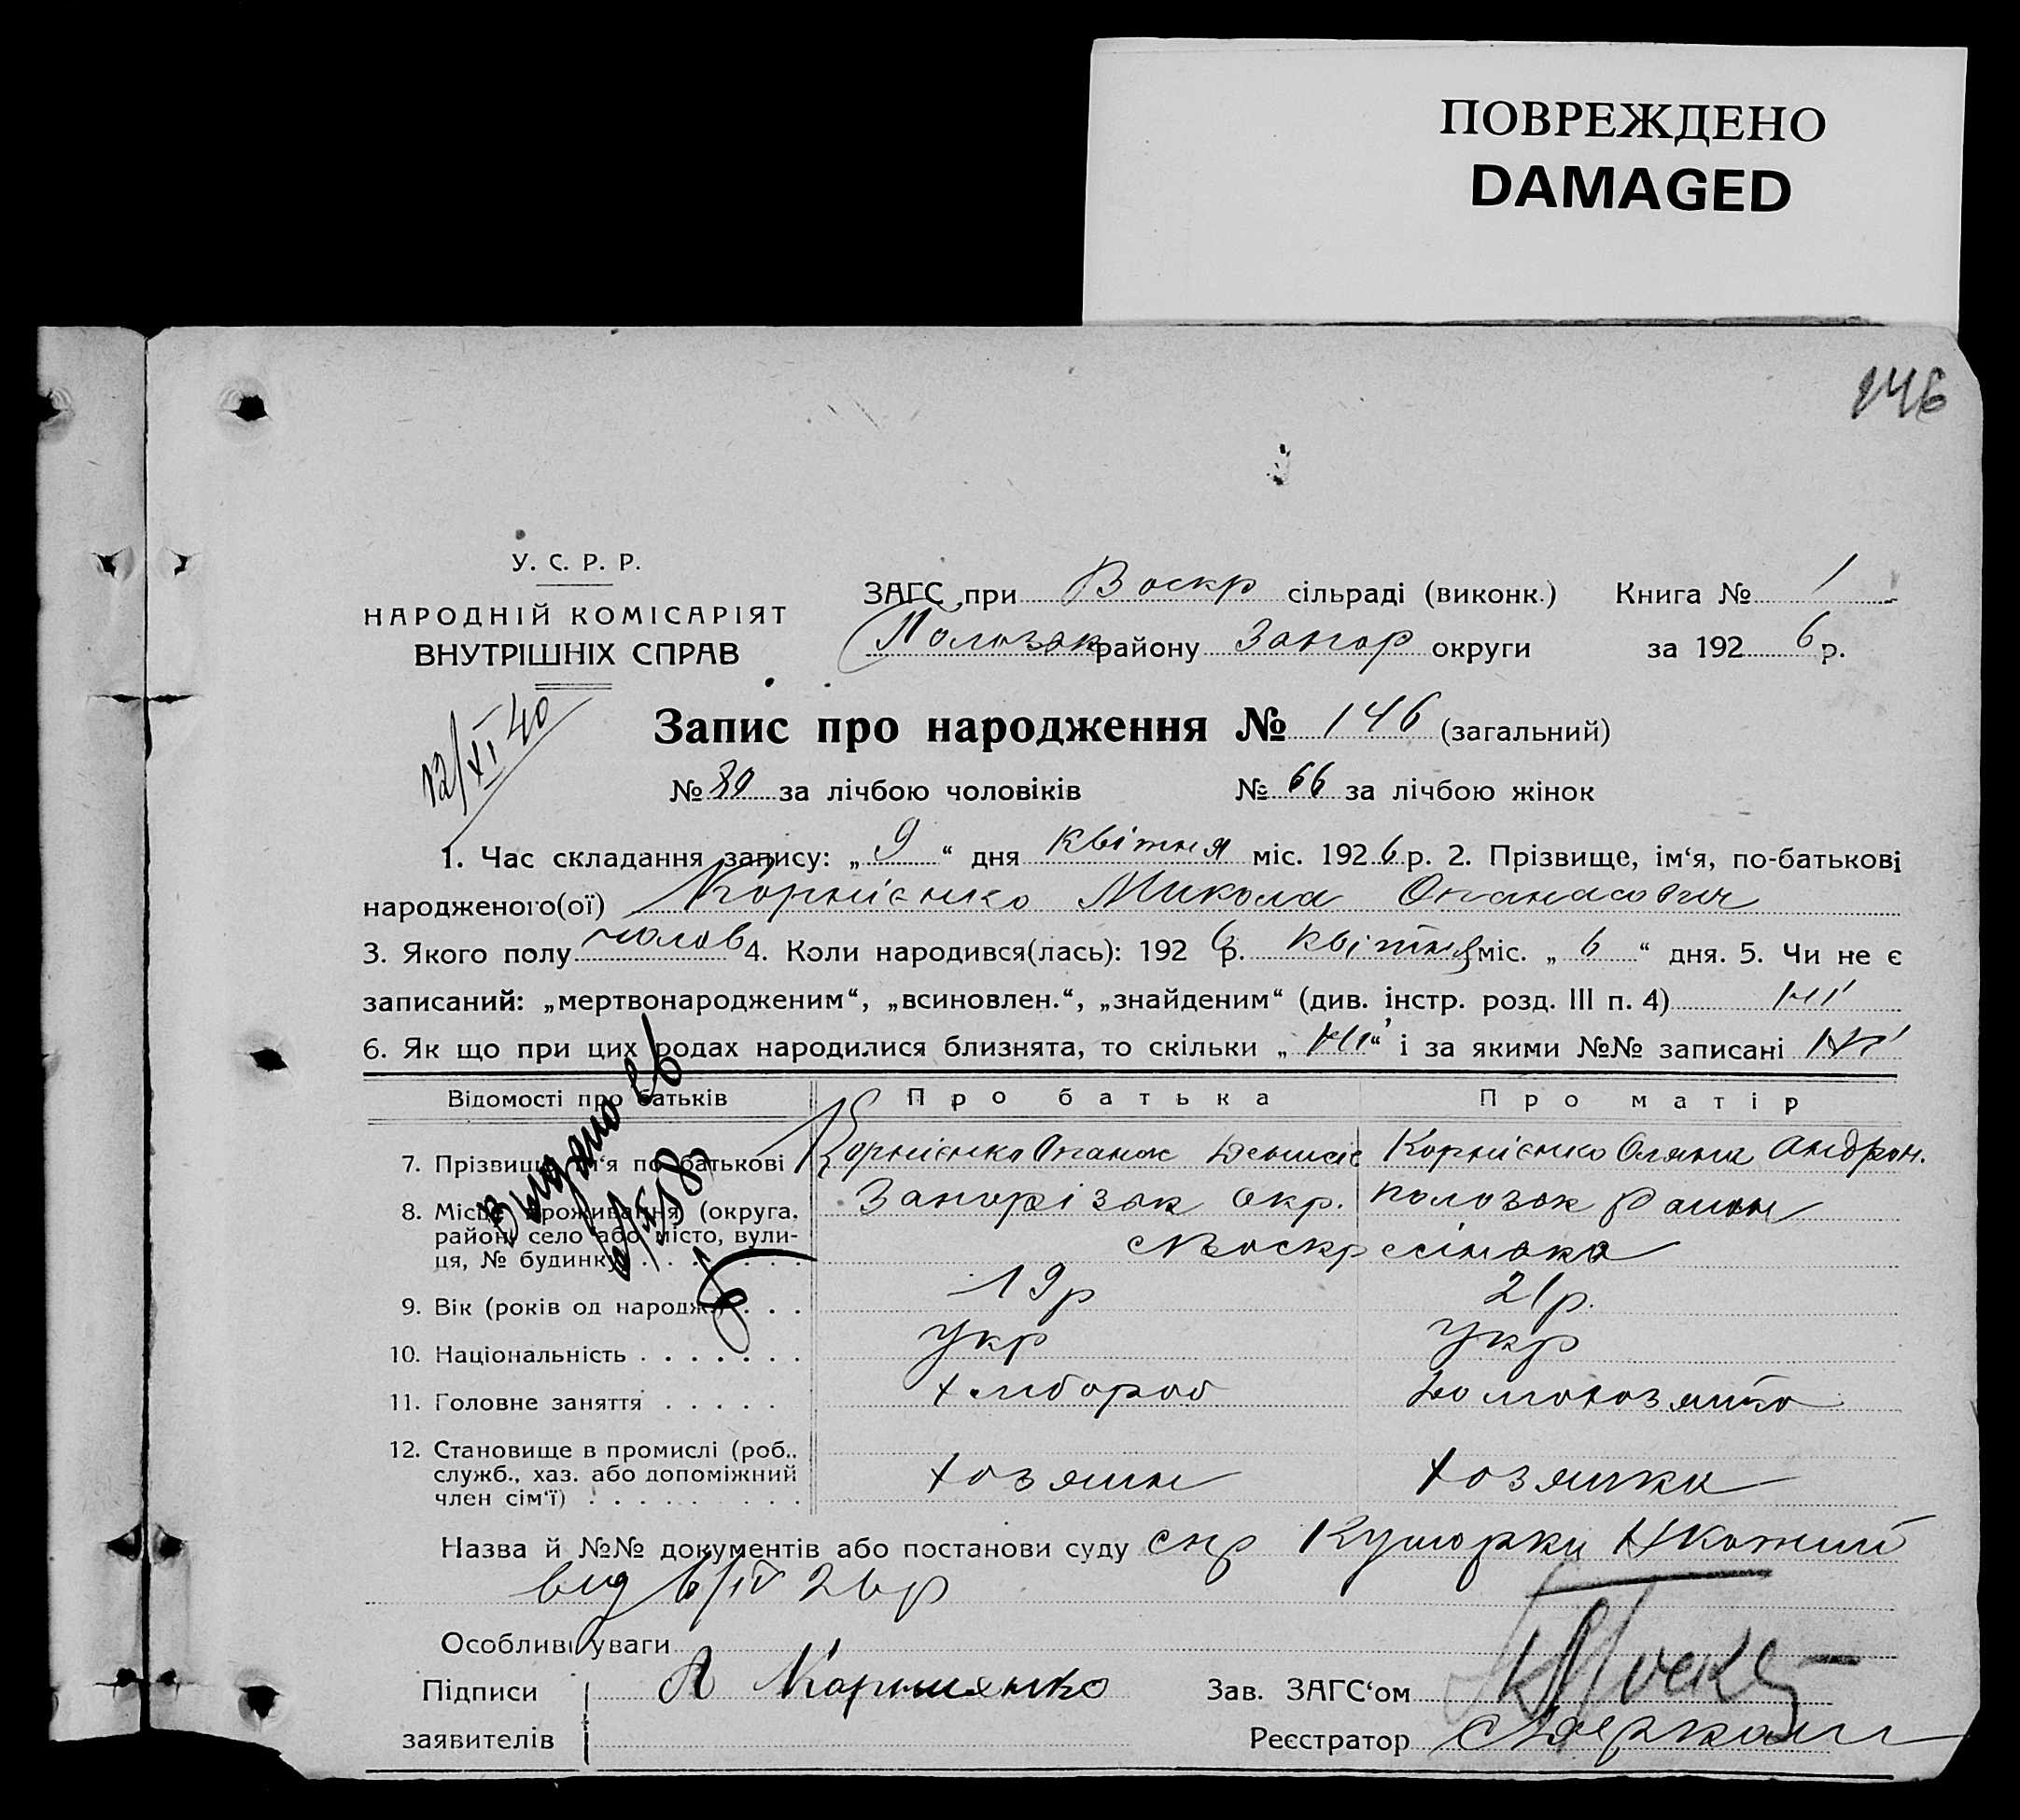 ПОВРЕЖДЕНО
DAMAGED
146
У. С. Р. Р.
НАРОДНІЙ КОМІСАРІЯТ
ВНУТРІШНІХ СПРАВ
ЗАГС при Воскр сільраді (виконк.) Книга № 1
Полозьк району Запор округи за 1926 р.
12/XI 40
Запис про народження № 146 (загальний)
№ 80 за лічбою чоловіків № 66 за лічбою жінок
1. Час складання запису: „ 9 “ дня квітня міс. 1926 р. 2. Прізвище, ім‘я, по-батькові
народженого(ої) Корнієнко Микола Опанасович
3. Якого полу чолов 4. Коли народився(лась): 1926 р. квітня міс. „ 6 “ дня. 5. Чи не є
записаний: „мертвонародженим“, „всиновлен.“, „знайденим“ (див. інстр. розд. III п. 4) ні
6. Як що при цих родах народилися близнята, то скільки „ ні “ і за якими №№ записані ні
Відомості про батьків Про батька Про матір
7. Прізвище ім‘я по-батькові Корнієнко Опанас Денисів Корнієнко Оляна Андрон.
8. Місце проживання (округа, Запорізьк окр. полозьк район
район, село або місто, вули-
ця, № будинку) с Воскресінька
Видано
9. Вік (років од народж.) 19р 21р.
10. Національність укр укр
11. Головне заняття хлібороб домохозяйка
12. Становище в промислі (роб.,
служб., хаз. або допоміжний хозяин хозяйка
член сім‘ї)
Назва й №№ документів або постанови суду спр
від 6/IV 26 р
Особливі уваги
Підписи А Корниенко Зав. ЗАГС‘ом
заявителів Реєстратор